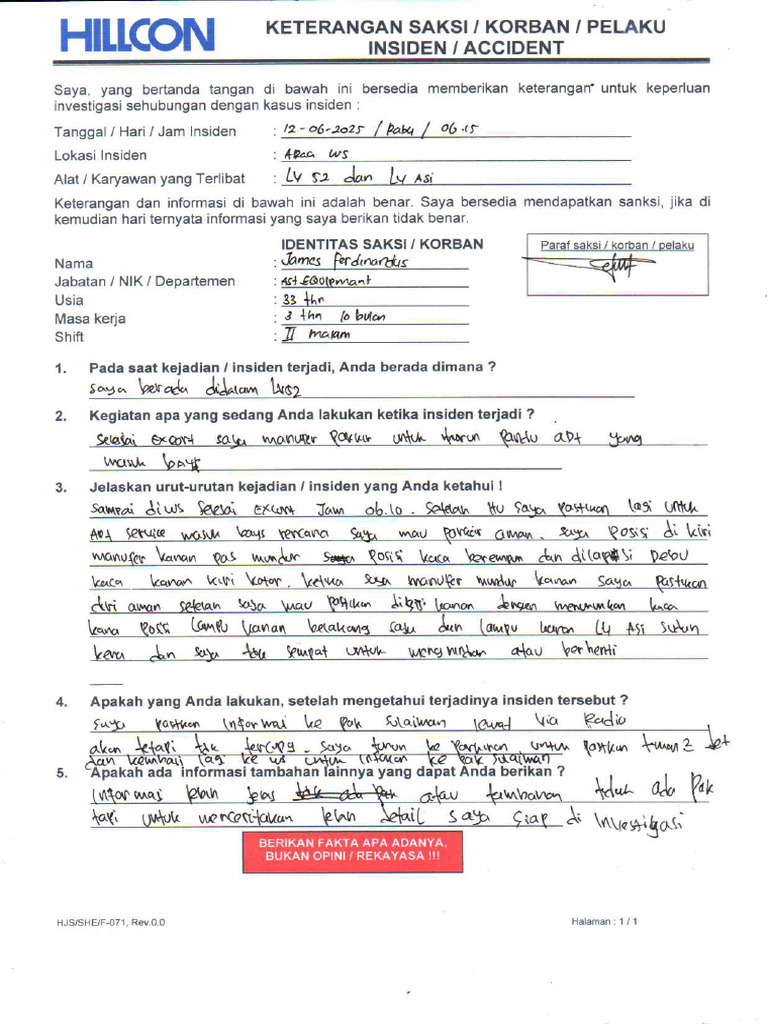 HILLCON
KETERANGAN SAKSI / KORBAN / PELAKU
INSIDEN / ACCIDENT
Saya, yang bertanda tangan di bawah ini bersedia memberikan keterangan untuk keperluan
investigasi sehubungan dengan kasus insiden :
Tanggal / Hari / Jam Insiden : 12-06-2025 / Rabu / 06.15
Lokasi Insiden : Area WS
Alat / Karyawan yang Terlibat : LV 52 dan LV Asi
Keterangan dan informasi di bawah ini adalah benar. Saya bersedia mendapatkan sanksi, jika di
kemudian hari ternyata informasi yang saya berikan tidak benar.
IDENTITAS SAKSI / KORBAN
Paraf saksi / korban / pelaku
Nama : James Ferdinandus
Jabatan / NIK / Departemen :
Usia : 33 thn
Masa kerja : 3 thn 10 bulan
Shift : II malam
1. Pada saat kejadian / insiden terjadi, Anda berada dimana ?
saya berada didalam LV52
2. Kegiatan apa yang sedang Anda lakukan ketika insiden terjadi ?
selesai Excort saya manufer Parkir untuk turun Pandu ADT yang
masuk bays
3. Jelaskan urut-urutan kejadian / insiden yang Anda ketahui !
sampai di WS selesai Excort Jam 06.10. Setelah itu saya pastikan lagi untuk
ADT service masuk bays rencana saya mau parkir aman. saya posisi di kiri
manufer kanan pas mundur posisi kaca berembun dan dilapisi Debu
kaca kanan kiri kotor. ketika saya manufer mundur kanan saya pastikan
diri aman setelah saya mau pastikan kanan dengan menurunkan kaca
kana posisi lampu kanan belakang saya dan lampu kanan LV Asi sudah
kena dan saya tdk sempat untuk atau berhenti
4. Apakah yang Anda lakukan, setelah mengetahui terjadinya insiden tersebut ?
saya pastikan informasi ke pak sulaiman lewat via Radio
akan tetapi tdk tercopy. saya turun ke parkiran untuk pastikan
dan kembali lagi ke WS untuk infokan ke pak sulaiman
5. Apakah ada informasi tambahan lainnya yang dapat Anda berikan ?
Informasi jelas atau tambahan tidak ada pak
tapi untuk menceritakan detail saya siap di Investigasi
BERIKAN FAKTA APA ADANYA,
BUKAN OPINI / REKAYASA !!!
HJS/SHE/F-071, Rev.0.0
Halaman : 1 / 1